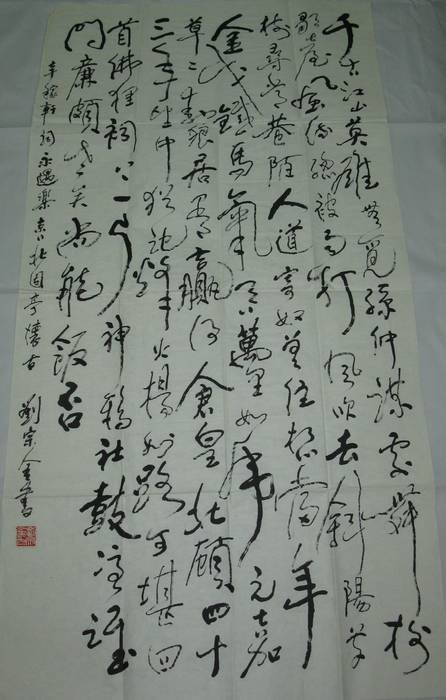 千古江山英雄無覓孫仲謀處舞榭
歌臺風流總被雨打風吹去斜陽草
樹尋常巷陌人道寄奴曾住想當年
金戈鐵馬氣吞萬里如虎元嘉
草草封狼居胥贏得倉皇北顧四十
三年望中猶記烽火揚州路可堪回
首佛狸祠下一片神鴉社鼓憑誰
問廉頗老矣尚能飯否
辛稼軒詞永遇樂京口北固亭懷古 劉宗書